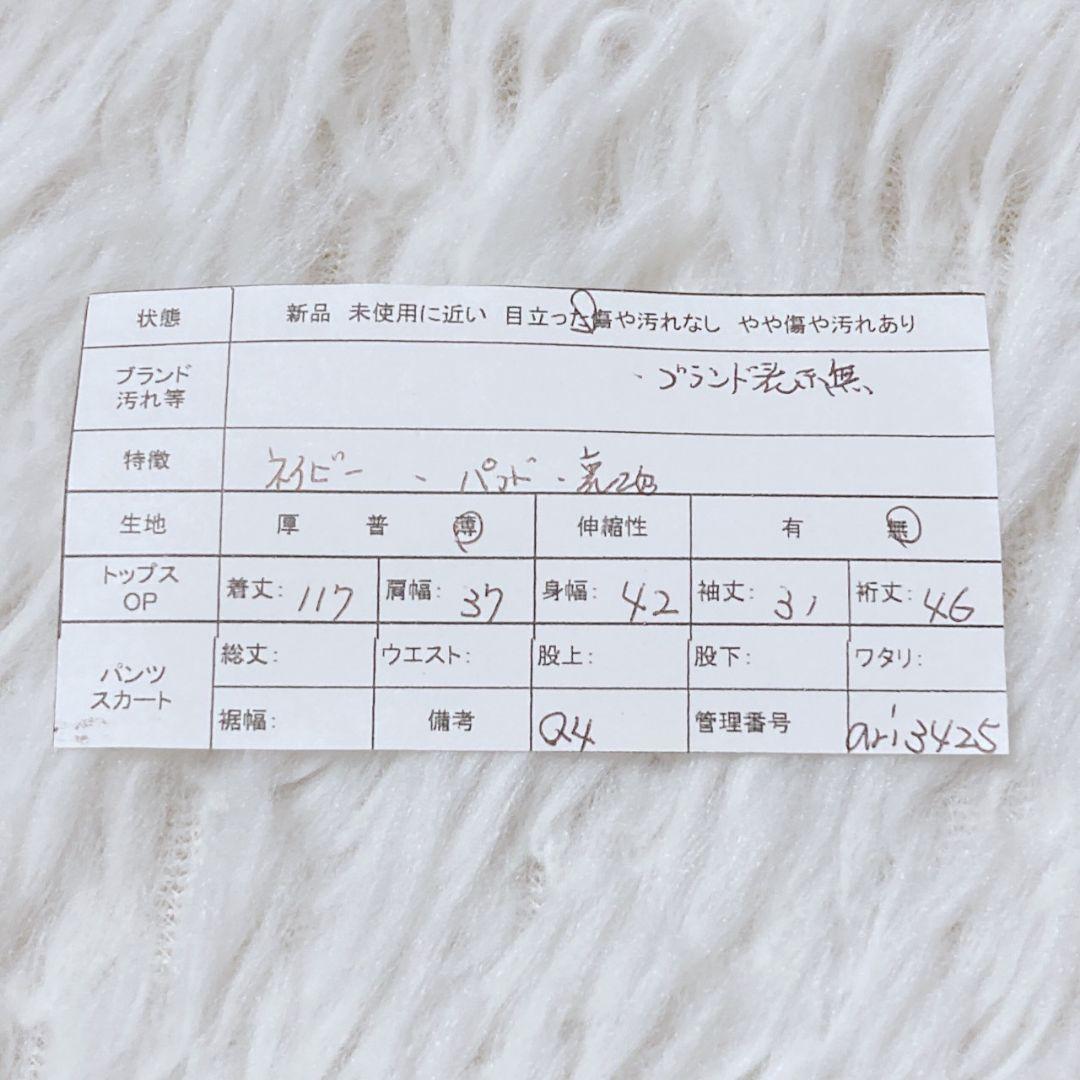 状態 新品 未使用に近い 目立った傷や汚れなし やや傷や汚れあり
ブランド
汚れ等
・ブランド表示無
特徴 ネイビー 、 パッド・裏地
生地 厚 普 薄 伸縮性 有 無
トップス
OP
着丈: 117 肩幅: 37 身幅: 42 袖丈: 31 裄丈: 46
パンツ
スカート
総丈: ウエスト: 股上: 股下: ワタリ:
裾幅: 備考 Q4 管理番号 ari3425